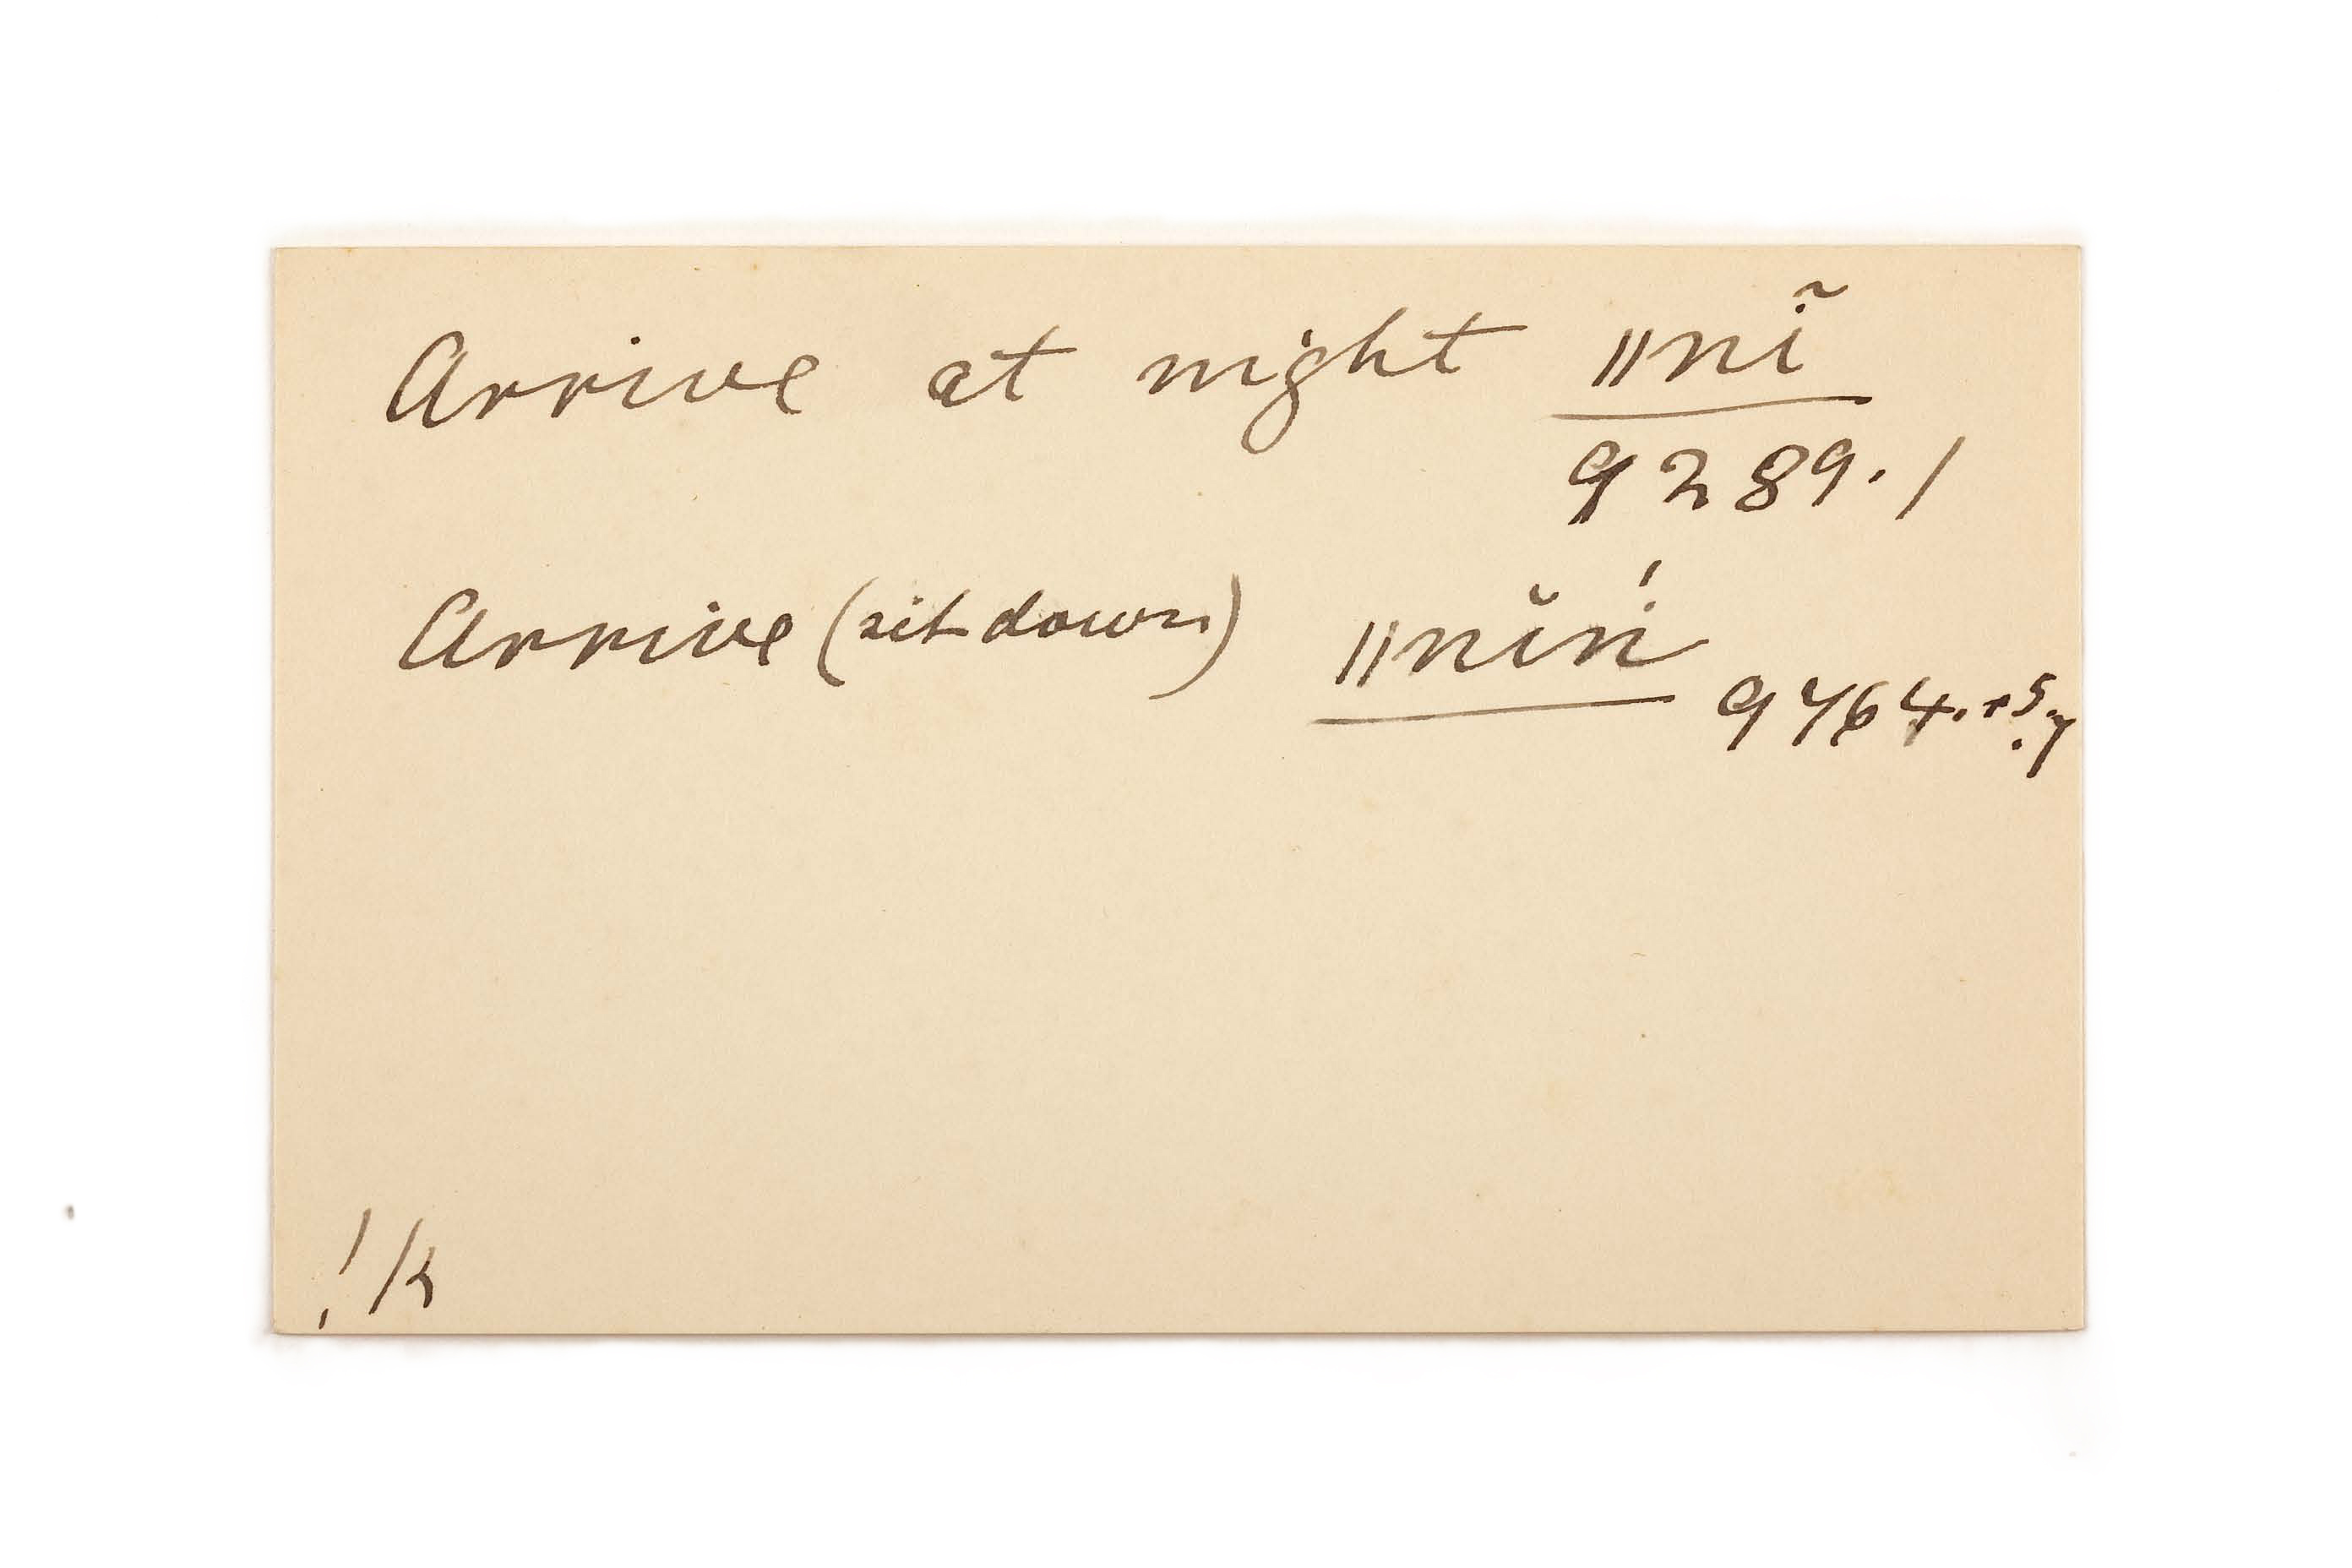 Arrive at night ǁnĩ
9289.1
Arrive (sit down) ǁnĭń
9464.+5.